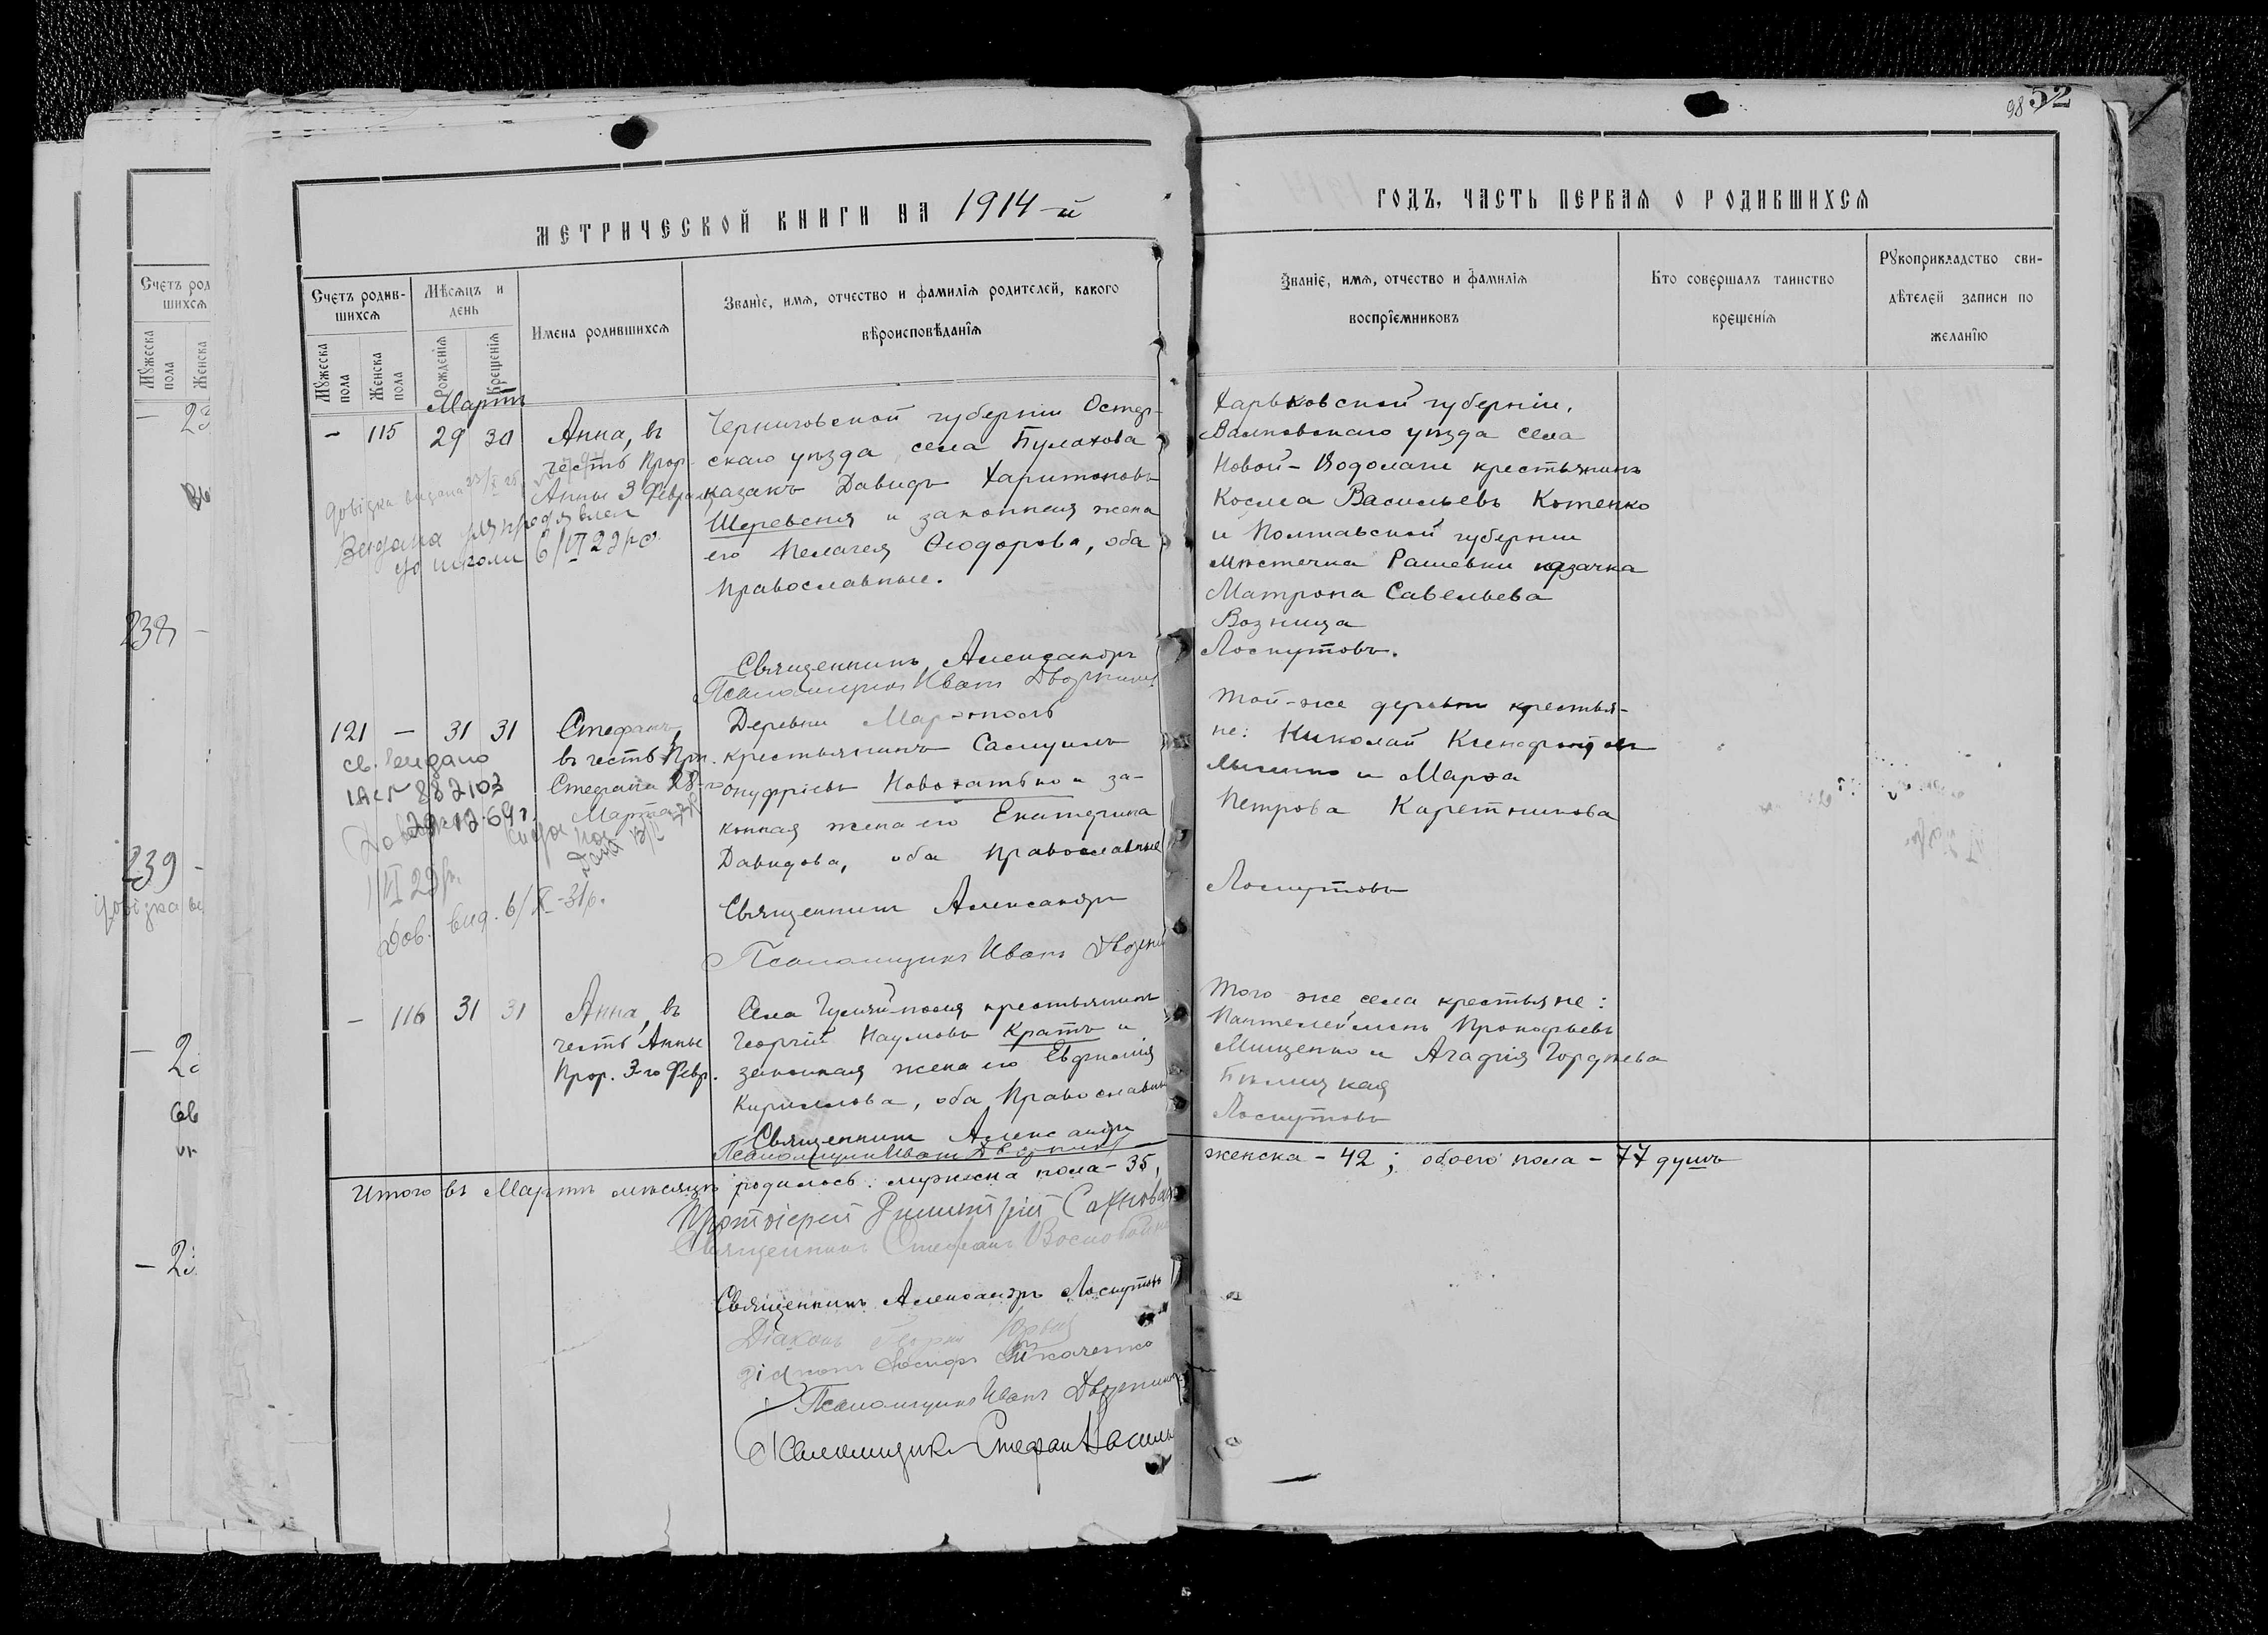 98 52
МЕТРИЧЕСКОЙ КНИГИ НА 1914-й
ГОДЪ, ЧАСТЬ ПЕРВАЯ О РОДИВШИХСЯ
Счетъ родив-
шихся
Мужеска
пола
Женска
пола
Мѣсяцъ и
день
Рожденія
Крещенія
Имена родившихся
Званіе, имя, отчество и фамилія родителей, какого
вѣроисповѣданія
Званіе, имя, отчество и фамилія
воспріемниковъ
Кто совершалъ таинство
крещенія
Рукоприкладство сви-
дѣтелей записи по
желанію
Мартъ
- 115 29 30
Анна, въ
честь Прор.
Анны 3 Февраля
Довідка видана
Видана для
до школи 6/VI 29 р.
Черниговской губерніи Остер-
скаго уѣзда, села Булахова
казакъ Давидъ Харитоновъ
Шеревеня и законная жена
его Пелагея Ѳеодорова, оба
православные.
Священникъ Александръ
Псаломщикъ Иванъ
Харьковской губерніи,
Валковскаго уѣзда села
Новой-Водолаги крестьянинъ
Косма Васильевъ Котенко
и Полтавской губерніи
мѣстечка Рашевки казачка
Матрона Савельева
Возница
Лоскутовъ.
121 - 31 31
Стефанъ,
въ честь Прп.
Стефана 28-го
Марта
св. выдано
882103
29-12-69 г.
VI 29 р.
Дов. вид. 6/X-31 р.
Деревни Маріополь
крестьянинъ Самуилъ
Онуфріевъ Новохатько и за-
конная жена его Екатерина
Давидова, оба православные
Священникъ Александръ
Псаломщикъ Иванъ
Той-же деревни крестья-
не: Николай Ксенофонтовъ
и Марѳа
Петрова Каретникова
Лоскутовъ
- 116 31 31
Анна, въ
честь Анны
Прор. 3-го Февр.
Села Гуляй-поля крестьянинъ
Георгій Наумовъ Кратъ и
законная жена его Евфимія
Кириллова, оба Православные
Священникъ Александръ
Псаломщикъ Иванъ
Того же села крестьяне:
Пантелеймонъ Прокофьевъ
Мищенко и Агафія Гордѣева
Бѣлицкая
Лоскутовъ
Итого въ Мартѣ мѣсяцѣ родилось: мужеска пола - 35,
женска - 42; обоего пола - 77 душъ
Протоіерей Димитрій
Священникъ Стефанъ
Священникъ Александръ Лоскутовъ
Діаконъ Георгій
Діаконъ Іосифъ Ткаченко
Псаломщикъ Иванъ
Псаломщикъ Стефанъ
Счетъ род
шихся
Мужеска
пола
Женска
- 23
238 -
239 -